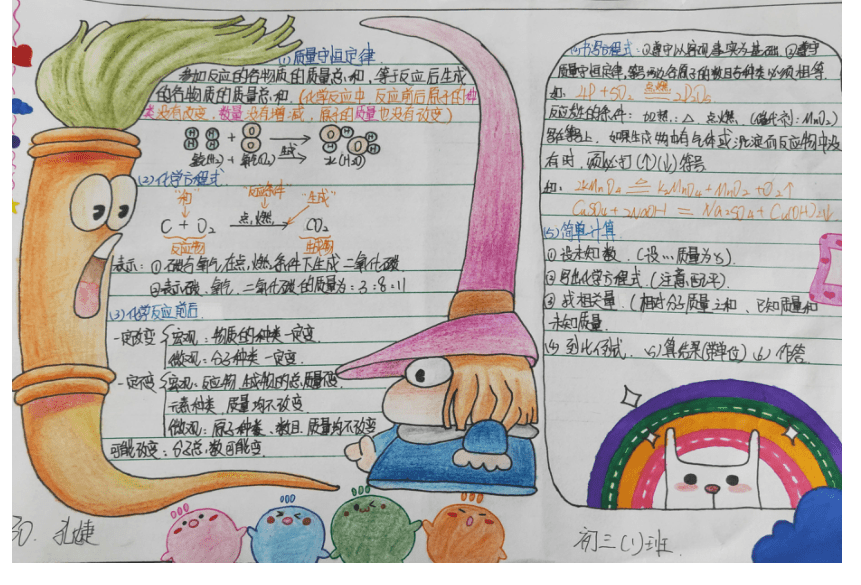 (1) 质量守恒定律
参加反应的各物质的质量总和,等于反应后生成
的各物质的质量总和 (化学反应中 反应前后原子的种
类没有改变,数量没有增减,原子的质量也没有改变)
H H O H O H
H H + O → 生成 H O H
氢(H₂) + 氧(O₂) → 水(H₂O)
(2) 化学方程式
"和" "反应条件" "生成"
C + O₂ 点燃 CO₂
反应物 生成物
表示: ①碳与氧气在点燃条件下生成二氧化碳
②表示碳、氧气、二氧化碳的质量为:3:8:11
(3) 化学反应前后
一定改变 宏观:物质的种类一定变
微观:分子种类一定变.
一定不变 宏观:反应物、生成物的总质量不变
元素种类、质量均不改变
微观:原子种类、数目、质量均不改变
可能改变:分子总数可能变
方程式:①遵守以客观事实为基础,②遵守
质量守恒定律,各原子的数目与种类必须相等.
如: 4P+5O₂ 点燃 2P₂O₅
反应发生的条件: 加热:△ 点燃、(催化剂:MnO₂)
如果生成物中有气体或沉淀而反应物中没
有时,须处打(↑)(↓)符号
如: 2KMnO₄ △ K₂MnO₄+MnO₂+O₂↑
CuSO₄+2NaOH = Na₂SO₄+Cu(OH)₂↓
(5) 简单计算
①设未知数.(设…质量为x).
②写出化学方程式.(注意:配平).
③找相关量.(相对分子质量之和、已知质量和
未知质量.
(4) 列比例式. (5) 算结果(带单位) (6) 作答
30. 孔婕
初三(1)班.